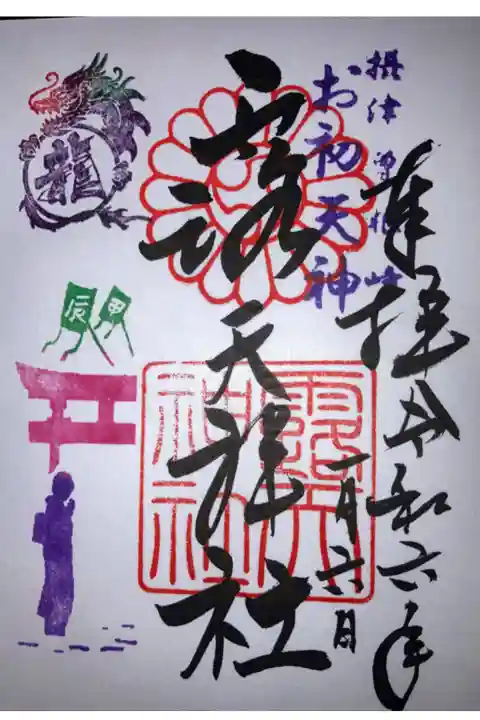 摂津曽根崎
お初天神
奉拝 令和六年
一月六日
露天神社
露天神社
龍
甲
辰